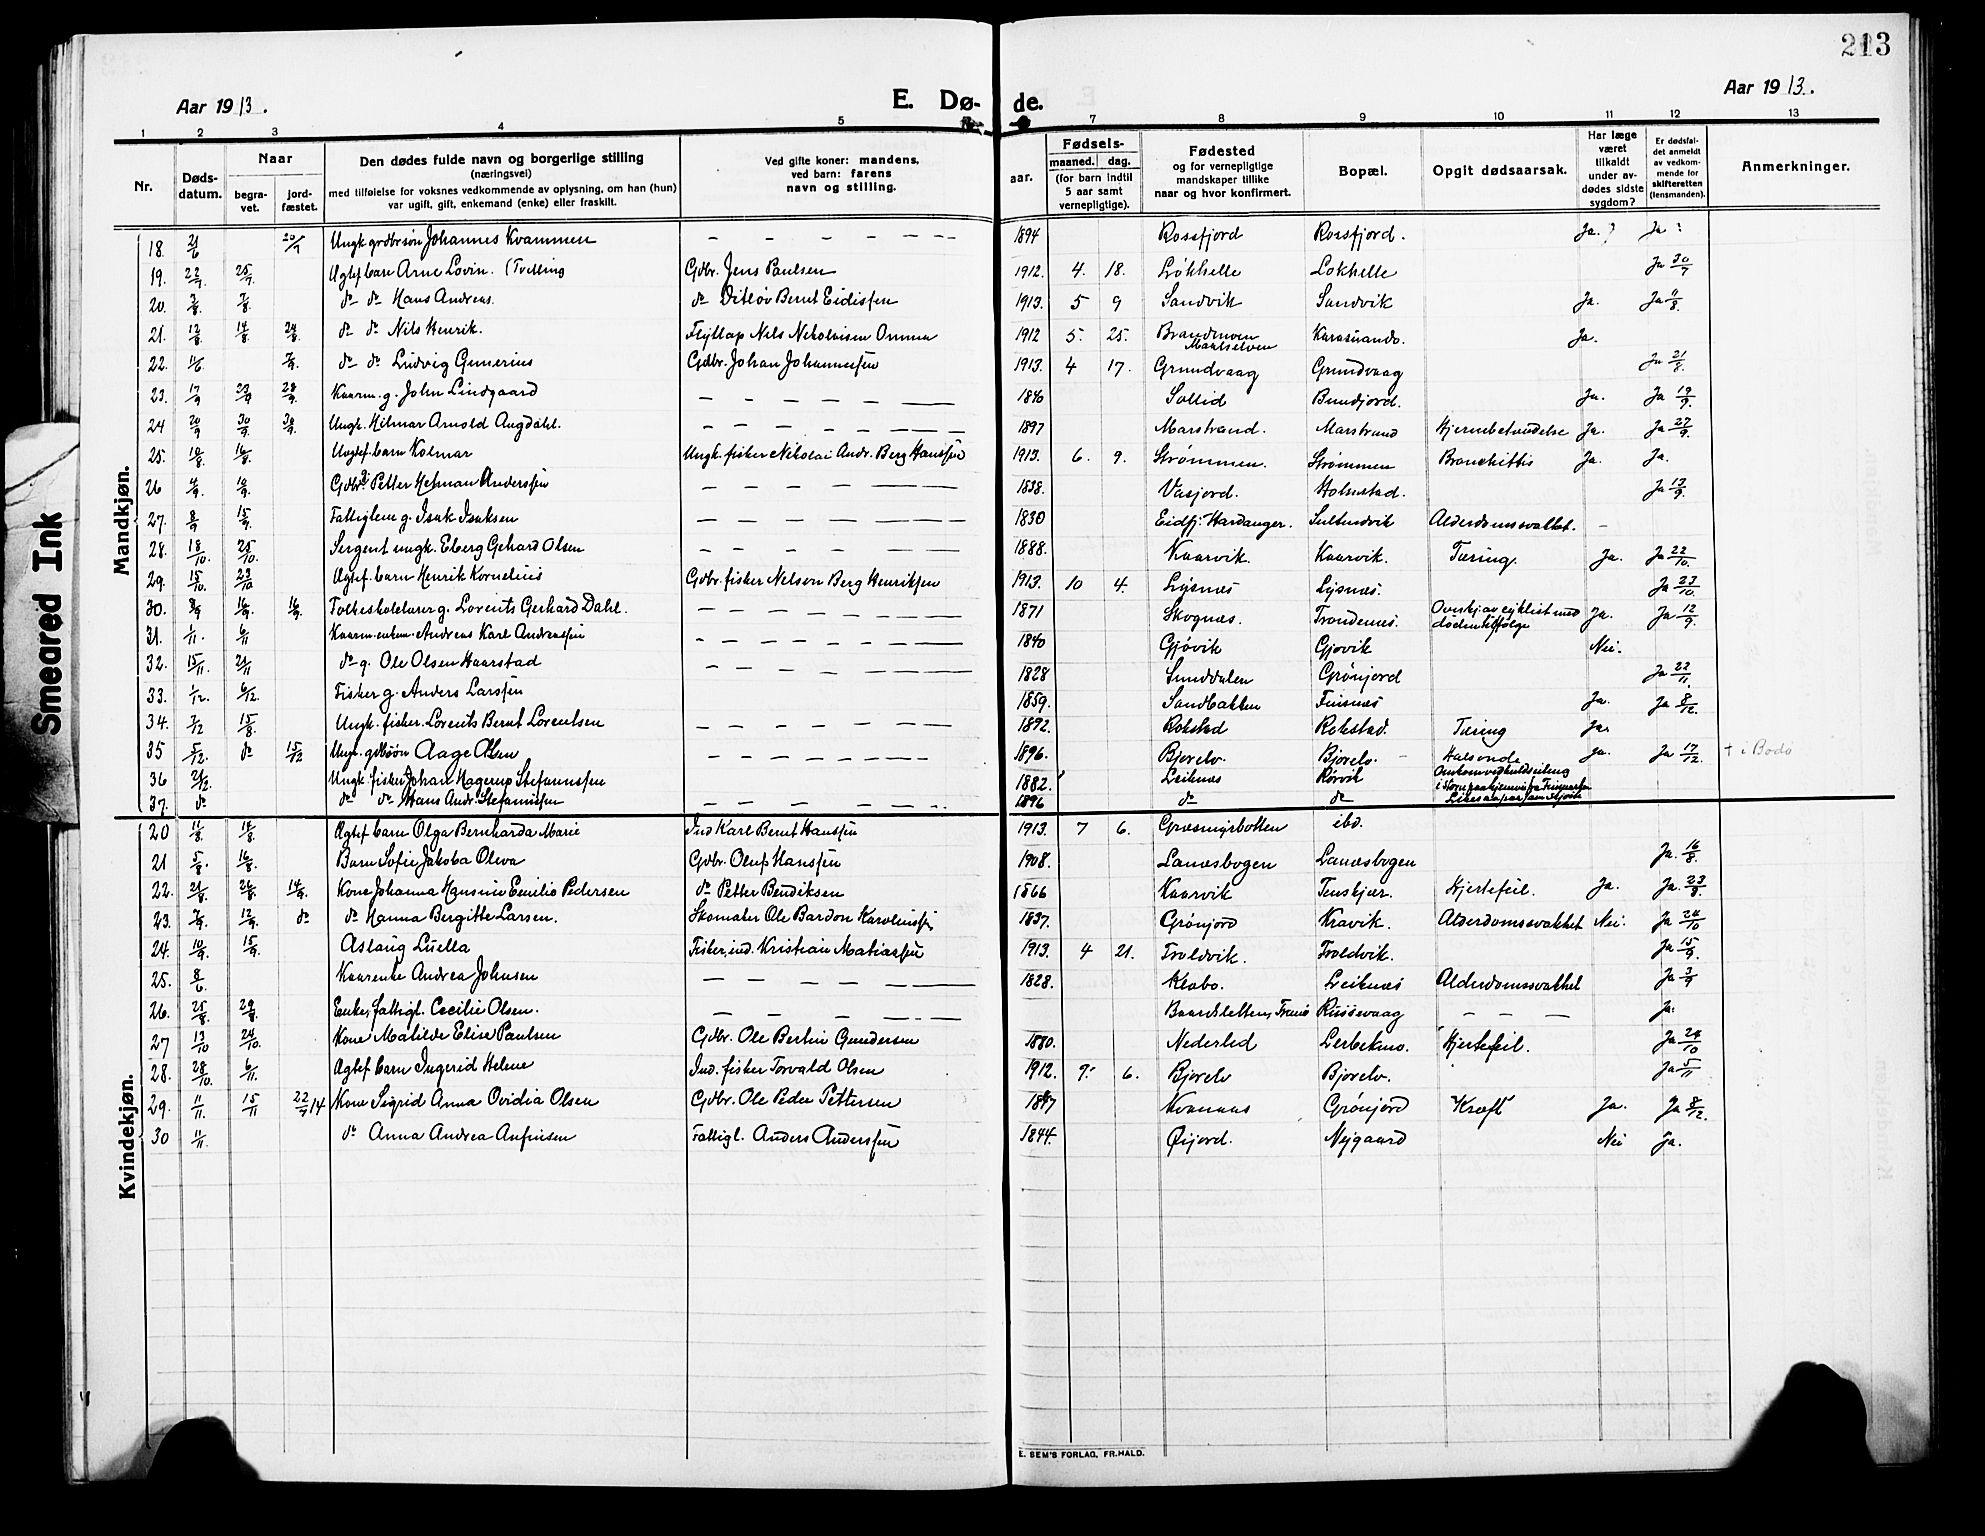 213
Aar 1913.
E. Dø- de.
Aar 1913.
1 2 3 4 5 7 8 9 10 11 12 13
Nr.
Døds-
datum.
Naar
begra-
vet.
jord-
fæstet.
Den dødes fulde navn og borgerlige stilling
(næringsvei)
med tilføielse for voksnes vedkommende av oplysning, om han (hun)
var ugift, gift, enkemand (enke) eller fraskilt.
Ved gifte koner: mandens,
ved barn: farens
navn og stilling.
aar.
Fødsels-
maaned. dag.
(for barn indtil
5 aar samt
vernepligtige).
Fødested
og for vernepligtige
mandskaper tillike
naar og hvor konfirmert.
Bopæl.
Opgit dødsaarsak.
Har læge
været
tilkaldt
under av-
dødes sidste
sygdom?
Er dødsfal-
det anmeldt
av vedkom-
mende for
skifteretten
(lensmanden).
Anmerkninger.
Mandkjøn.
18. 21/6 20/7 Ungk. grdbrsøn Johannes Kvammen — — — — — — 1894 Rossfjord Rossfjord. Ja. ? Ja ?
19. 22/7 25/7 Ugtef barn Arne Lovin. (Tvilling Gdbr. Jens Paulsen 1912. 4. 18. Løkhelle Lokhelle Ja 30/7
20. 3/8 7/8 do do Hans Andreas. do Ditløv Bernt Eidissen 1913. 5 9 Sandvik Sandvik Ja. Ja 11/8
21. 12/8 14/8 24/8 do do Nils Henrik. Flyttap Nils Nikolaisen Omma 1912 5. 25. Brandmoen Maalselven Karasuando. Ja.
22. 11/6 7/9 do do Ludvig Gunerius Gdbr. Johan Johannessen 1913. 4 17. Grundvaag Grundvaag Ja 21/8
23. 17/9 23/9 28/9 Kaarm. g. John Lindgaard — — — — — — 1846 Sollid Bundjord. Ja. Ja 19/9
24 20/9 30/9 30/9 Ungk. Hilmar Arnold Augdahl. — — — — — — 1897 Marstrand. Marstrand Hjernebetændelse Ja. Ja 27/9
25. 10/8 16/8 Uegtef. barn Kolmar Ungk. fisker Nikolai Andr. Berg Hanssen 1913. 6. 9. Strømmen. Strømmen Bronchittis Ja. Ja.
26 4/9 10/9 Gdbr. Petter Heman Anderssen — — — — — — 1838. Vasjord. Holmstad. Ja 13/9
27. 8/9 15/9 Fattiglem g. Isak Isaksen — — — — — — 1830 Eidfj. Hardanger. Sultindvik Alderdomssvakhet. —
28. 18/10 25/10. Sergent ungk. Eberg Gehard Olsen — — — — — — 1888. Kaarvik. Kaarvik. Tæring. Ja. Ja 22/10.
29. 15/10. 23/10 Ægtef. barn Henrik Kornelius Gdbr. fisker Nelson Berg Henriksen 1913. 10 4. Lysnes Lysnes. Ja 23/10
30. 8/9 16/9. 16/9. Folkeskolelærer g. Lorents Gerhard Dahl. — — — — — — 1871 Skognæs. Trondenes. Overkj av cyklist med døden tilfølge Ja. Ja 12/9.
31. 1/11. 6/11 Kaarm. enkem. Andreas Karl Andreassen — — — — — — 1840 Gjøvik Gjøvik Nei.
32. 15/11 21/11 do g. Ole Olsen Haarstad — — — — — — 1828 Sunddalen Grønjord Ja 22/11.
33. 1/12. 6/12. Fisker g. Anders Larssen 1859. Sandbakken Finsnæs Ja. Ja 8/12.
34. 7/12 15/8 Ungk. fisker. Lorents Bernt Lorentsen — — — — — — 1892. Rokstad Rokstad. Tæring Ja.
35 5/12. do 15/12 Ungk. gdbsøn Aage Olsen — — — — — — 1896. Bjorelv. Bjorelv. Halsonde Ja. Ja 17/12. † i Bodø
36 21/12. Ungk. fisker Johan Hagerup Stefanussen 1882. Leiknæs Rørvik Omkom ved kuldseiling
37. do do do Hans Andr. Stefanussen — — — — — 1896 do do
Kvindekjøn.
20 11/8. 18/8. Ægtef barn Olga Bernharda Marie Ind Karl Bernt Hanssen 1913. 7 6. Græsmyrbotten ibd.
21 5/8. 16/8. Barn Sofie Jakoba Oleva Gdbr. Oluf Hanssen 1908. Lanæsbogen Lanæsbogen Ja. 16/8.
22. 21/8 26/8. 14/9. Kone Johanna Hansine Emilie Pedersen do Petter Bendiksen 1866 Kaarvik Tenskjær. Hjertefeil. Ja. Ja. 23/8.
23. 7/9. 12/9. do do Hanna Bergitte Larsen. Skomaker Ole Bardon Karolinssen 1837. Grønjord Kravik. Alderdomssvakhet Nei. Ja 24/10
24. 10/9. 15/9. Aslaug Luella Fisker, ind. Kristian Matiassen 1913. 4 21. Troldvik. Troldvik. Ja 15/9.
25. 8/6 Kaarenke Andrea Johnsen — — — — — — 1828. Klabo. Leiknæs Alderdomssvakhet Ja 3/9
26. 25/8 29/8. Enke, fattigl. Cecilie Olsen. — — — — — — Baardsletten, Tranø Russevaag — — — Ja.
27 13/10 24/10. Kone Matilde Elise Paulsen Gdbr. Ole Bertin Gundersen 1880. Nederlid Lerbekmo. Hjertefeil. Ja 24/10
28. 28/10. 6/11. Ægtef barn Ingerid Helene Ind. fisker Torvald Olsen 1912. 7. 6. Bjorelv Bjorelv. Ja 5/11
29. 11/11. 15/11 22/9 14 Kone Sigrid Anna Ovidia Olsen Gdbr. Ole Peder Pettersen Kvanaas Grønjord Kræft Ja. Ja 8/12.
30 11/11. do Anna Andrea Anfinsen Fattigl. Anders Anderssen 1844. Øijord. Nygaard Nei Ja.
E. SEM'S FORLAG, FR.HALD.
Smeared Ink